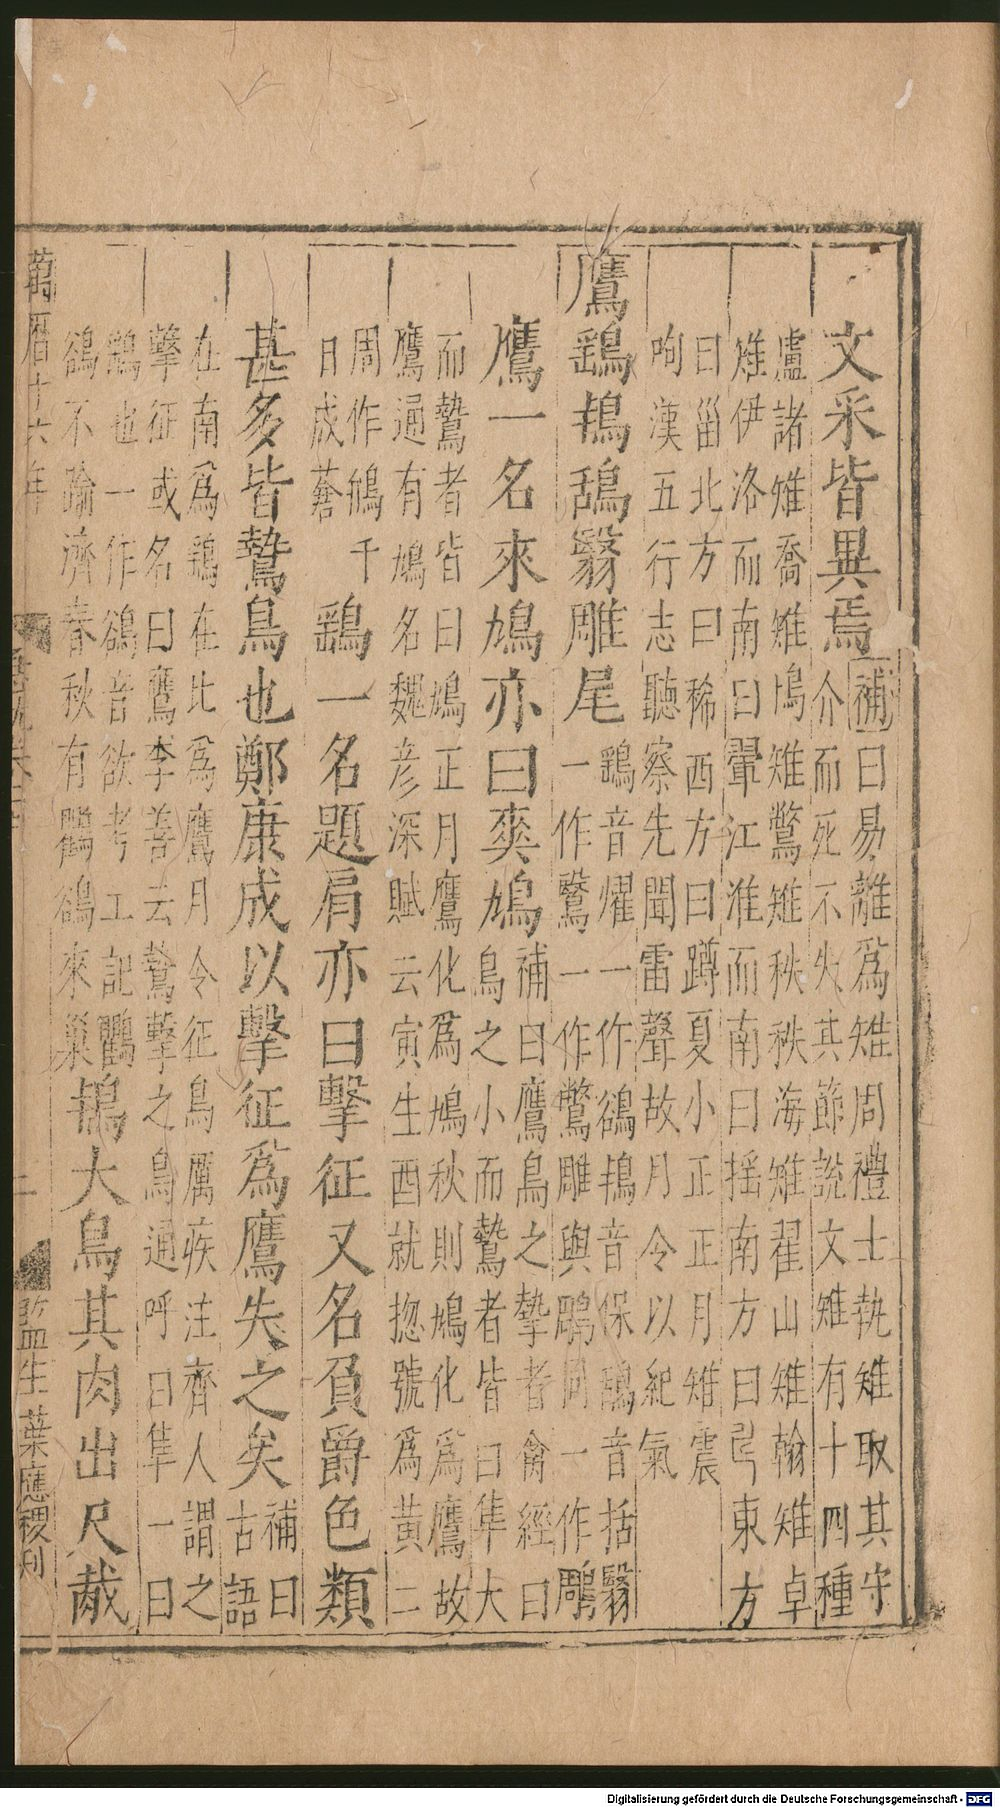 文采皆異焉補曰易離為雉周禮士執雉取其守
介而死不失其節說文雉有十四種
盧諸雉喬雉鳪雉鷩雉秩秩海雉翟山雉翰雉卓
雉伊洛而南曰翬江淮而南曰搖南方曰𢏚東方
曰甾北方曰稀西方曰蹲夏小正正月雉震
呴漢五行志聽察先聞雷聲故月令以紀氣
鷹鷂鴇鴰翳雕尾鷂音燿一作鵒鴇音保鴰音括翳
一作鷖一作鷩雕與鵰同一作鵰
鷹一名來鳩亦曰爽鳩補曰鷹鳥之摯者禽經曰
鳥之小而鷙者皆曰隼大
而鷙者皆曰鳩正月鷹化為鳩秋則鳩化為鷹故
鷹通有鳩名魏彥深賦云寅生酉就惣號為黃二
周作鴘千
日成蒼
鷂一名題肩亦曰擊征又名負爵色類
甚多皆鷙鳥也鄭康成以擊征為鷹失之矣補曰
古語
在南為鷂在北為鷹月令征鳥厲疾注齊人謂之
擊征或名曰鷹李善云鷙擊之鳥通呼曰隼一曰
鷂也一作鵒音欲考工記鸜
鵒不踰濟春秋有鸜鵒來巢
鴇大鳥其肉出尺胾
萬曆十六年
監生葉應稷刊
Digitalisierung gefördert durch die Deutsche Forschungsgemeinschaft - DFG